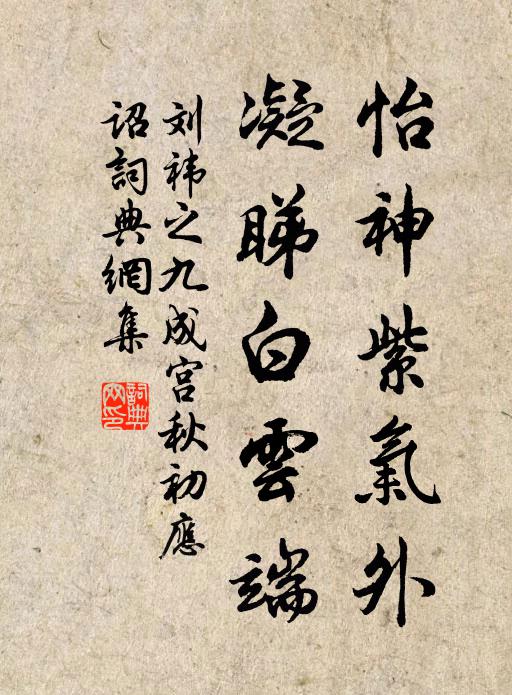 怡神紫氣外
凝睇白雲端
刘祎之九成宮秋初應
詔詞典網集
詞典
网印